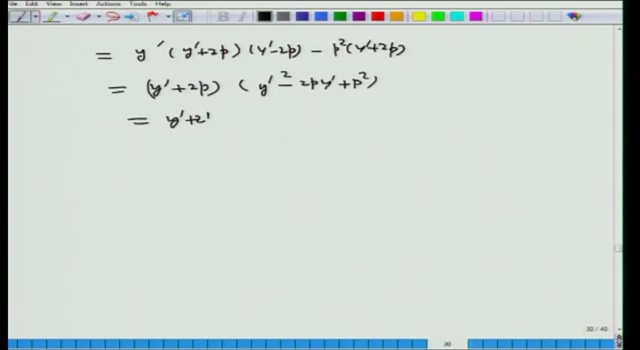 Edit View Insert Actions Tools Help
= y' (y'+2p) (y'-2p) - p²(y'+2p)
= (y'+2p) (y'² - 2py' + p²)
= y'+2'
30 / 40
30